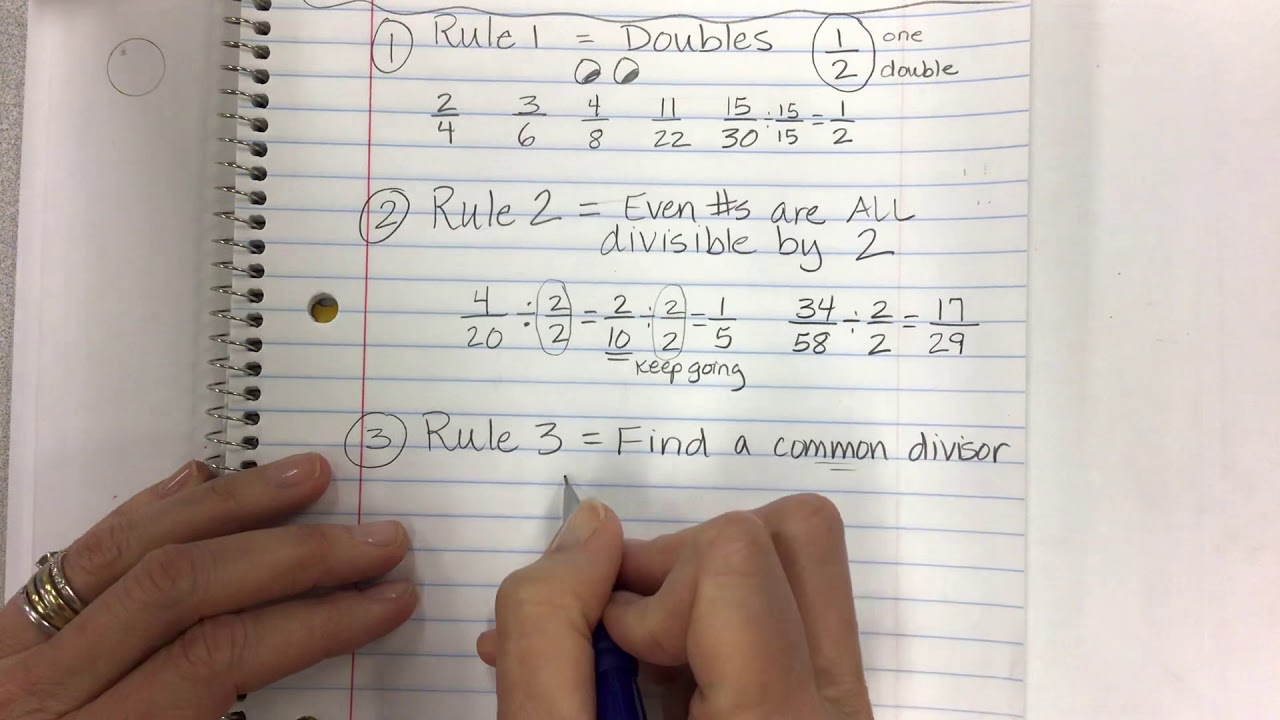 ① Rule 1 = Doubles 1/2 one double
2/4 3/6 4/8 11/22 15/30 ÷ 15/15 = 1/2
② Rule 2 = Even #s are ALL
divisible by 2
4/20 ÷ 2/2 = 2/10 ÷ 2/2 = 1/5 34/58 ÷ 2/2 = 17/29
keep going
③ Rule 3 = Find a common divisor